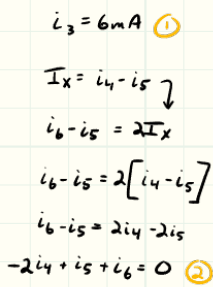 i₃ = 6mA ①
Iₓ = i₄ - i₅
i₆ - i₅ = 2Iₓ
i₆ - i₅ = 2[i₄ - i₅]
i₆ - i₅ = 2i₄ - 2i₅
-2i₄ + i₅ + i₆ = 0 ②